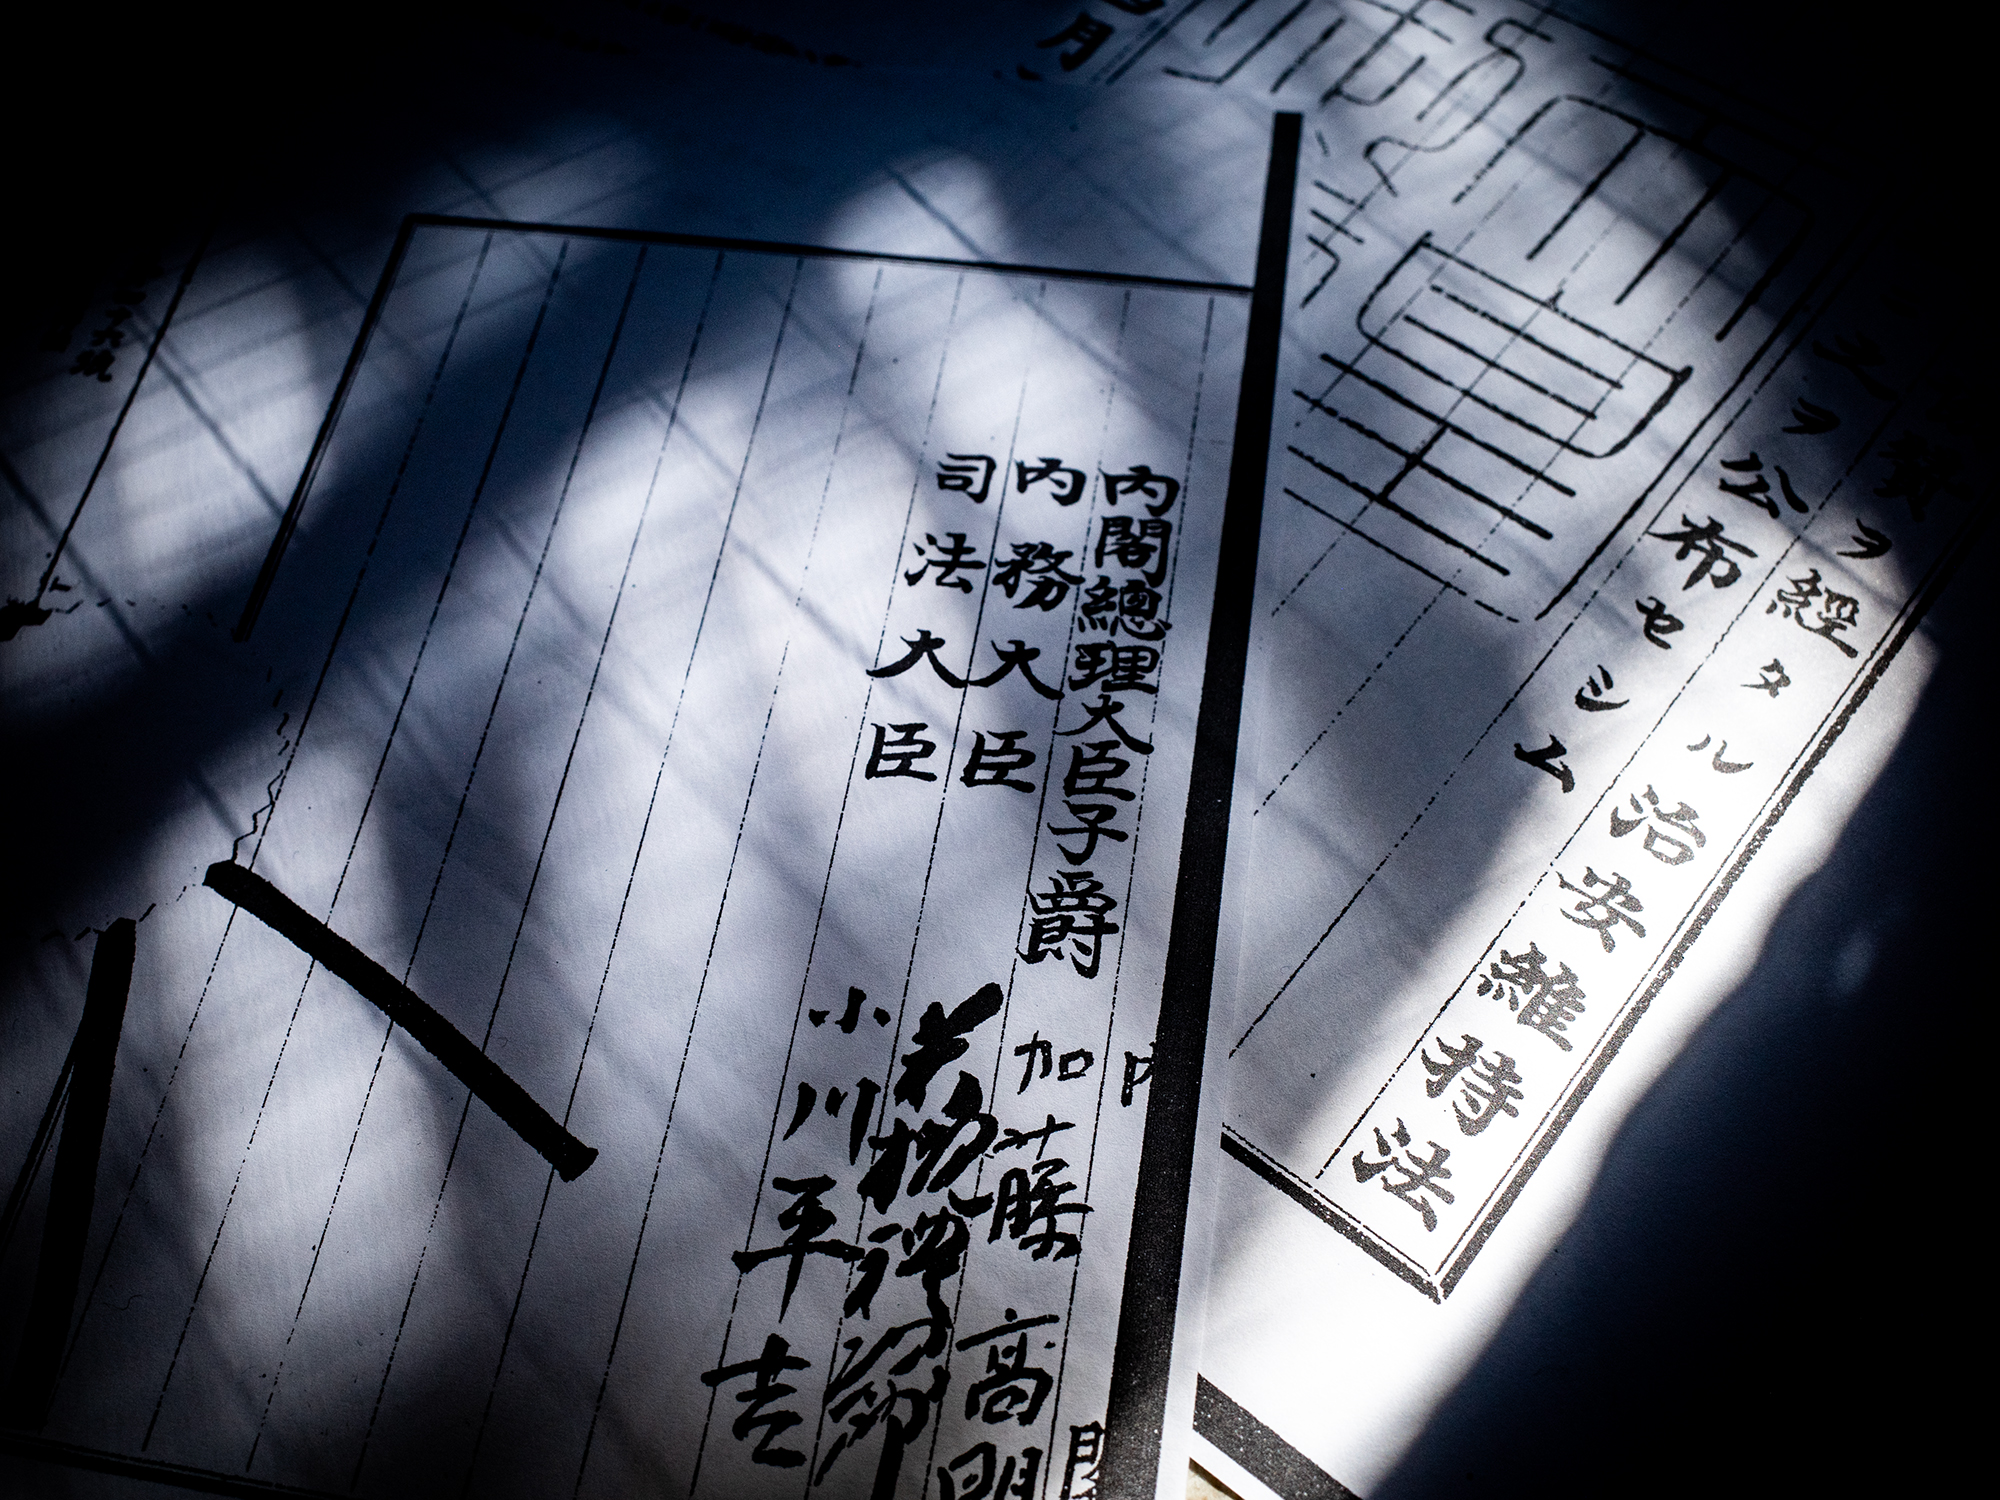 ヲ經タル治安維持法
ヲ公布セシム
月
內閣總理大臣子爵
加藤高明
內務大臣
若槻禮次郎
司法大臣
小川平吉